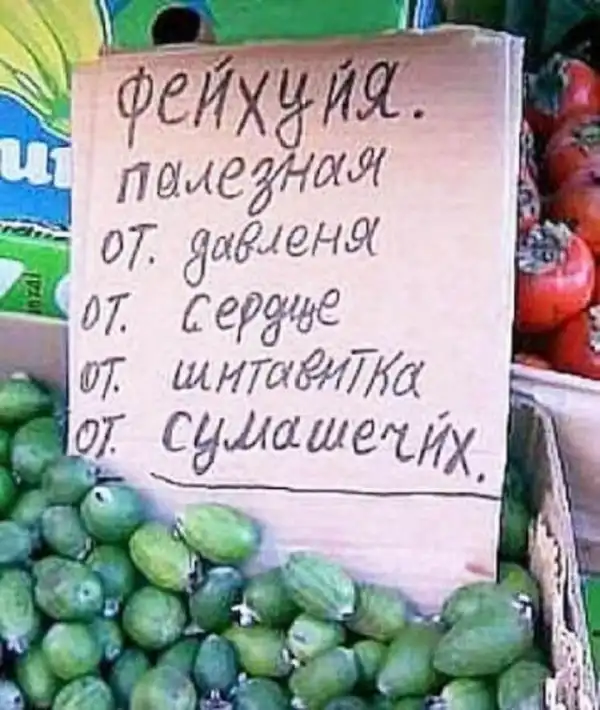 ФЕЙХУЙЯ.
палезная
от. давленя
от. сердце
от. шитавитка
от. сумашечйх.